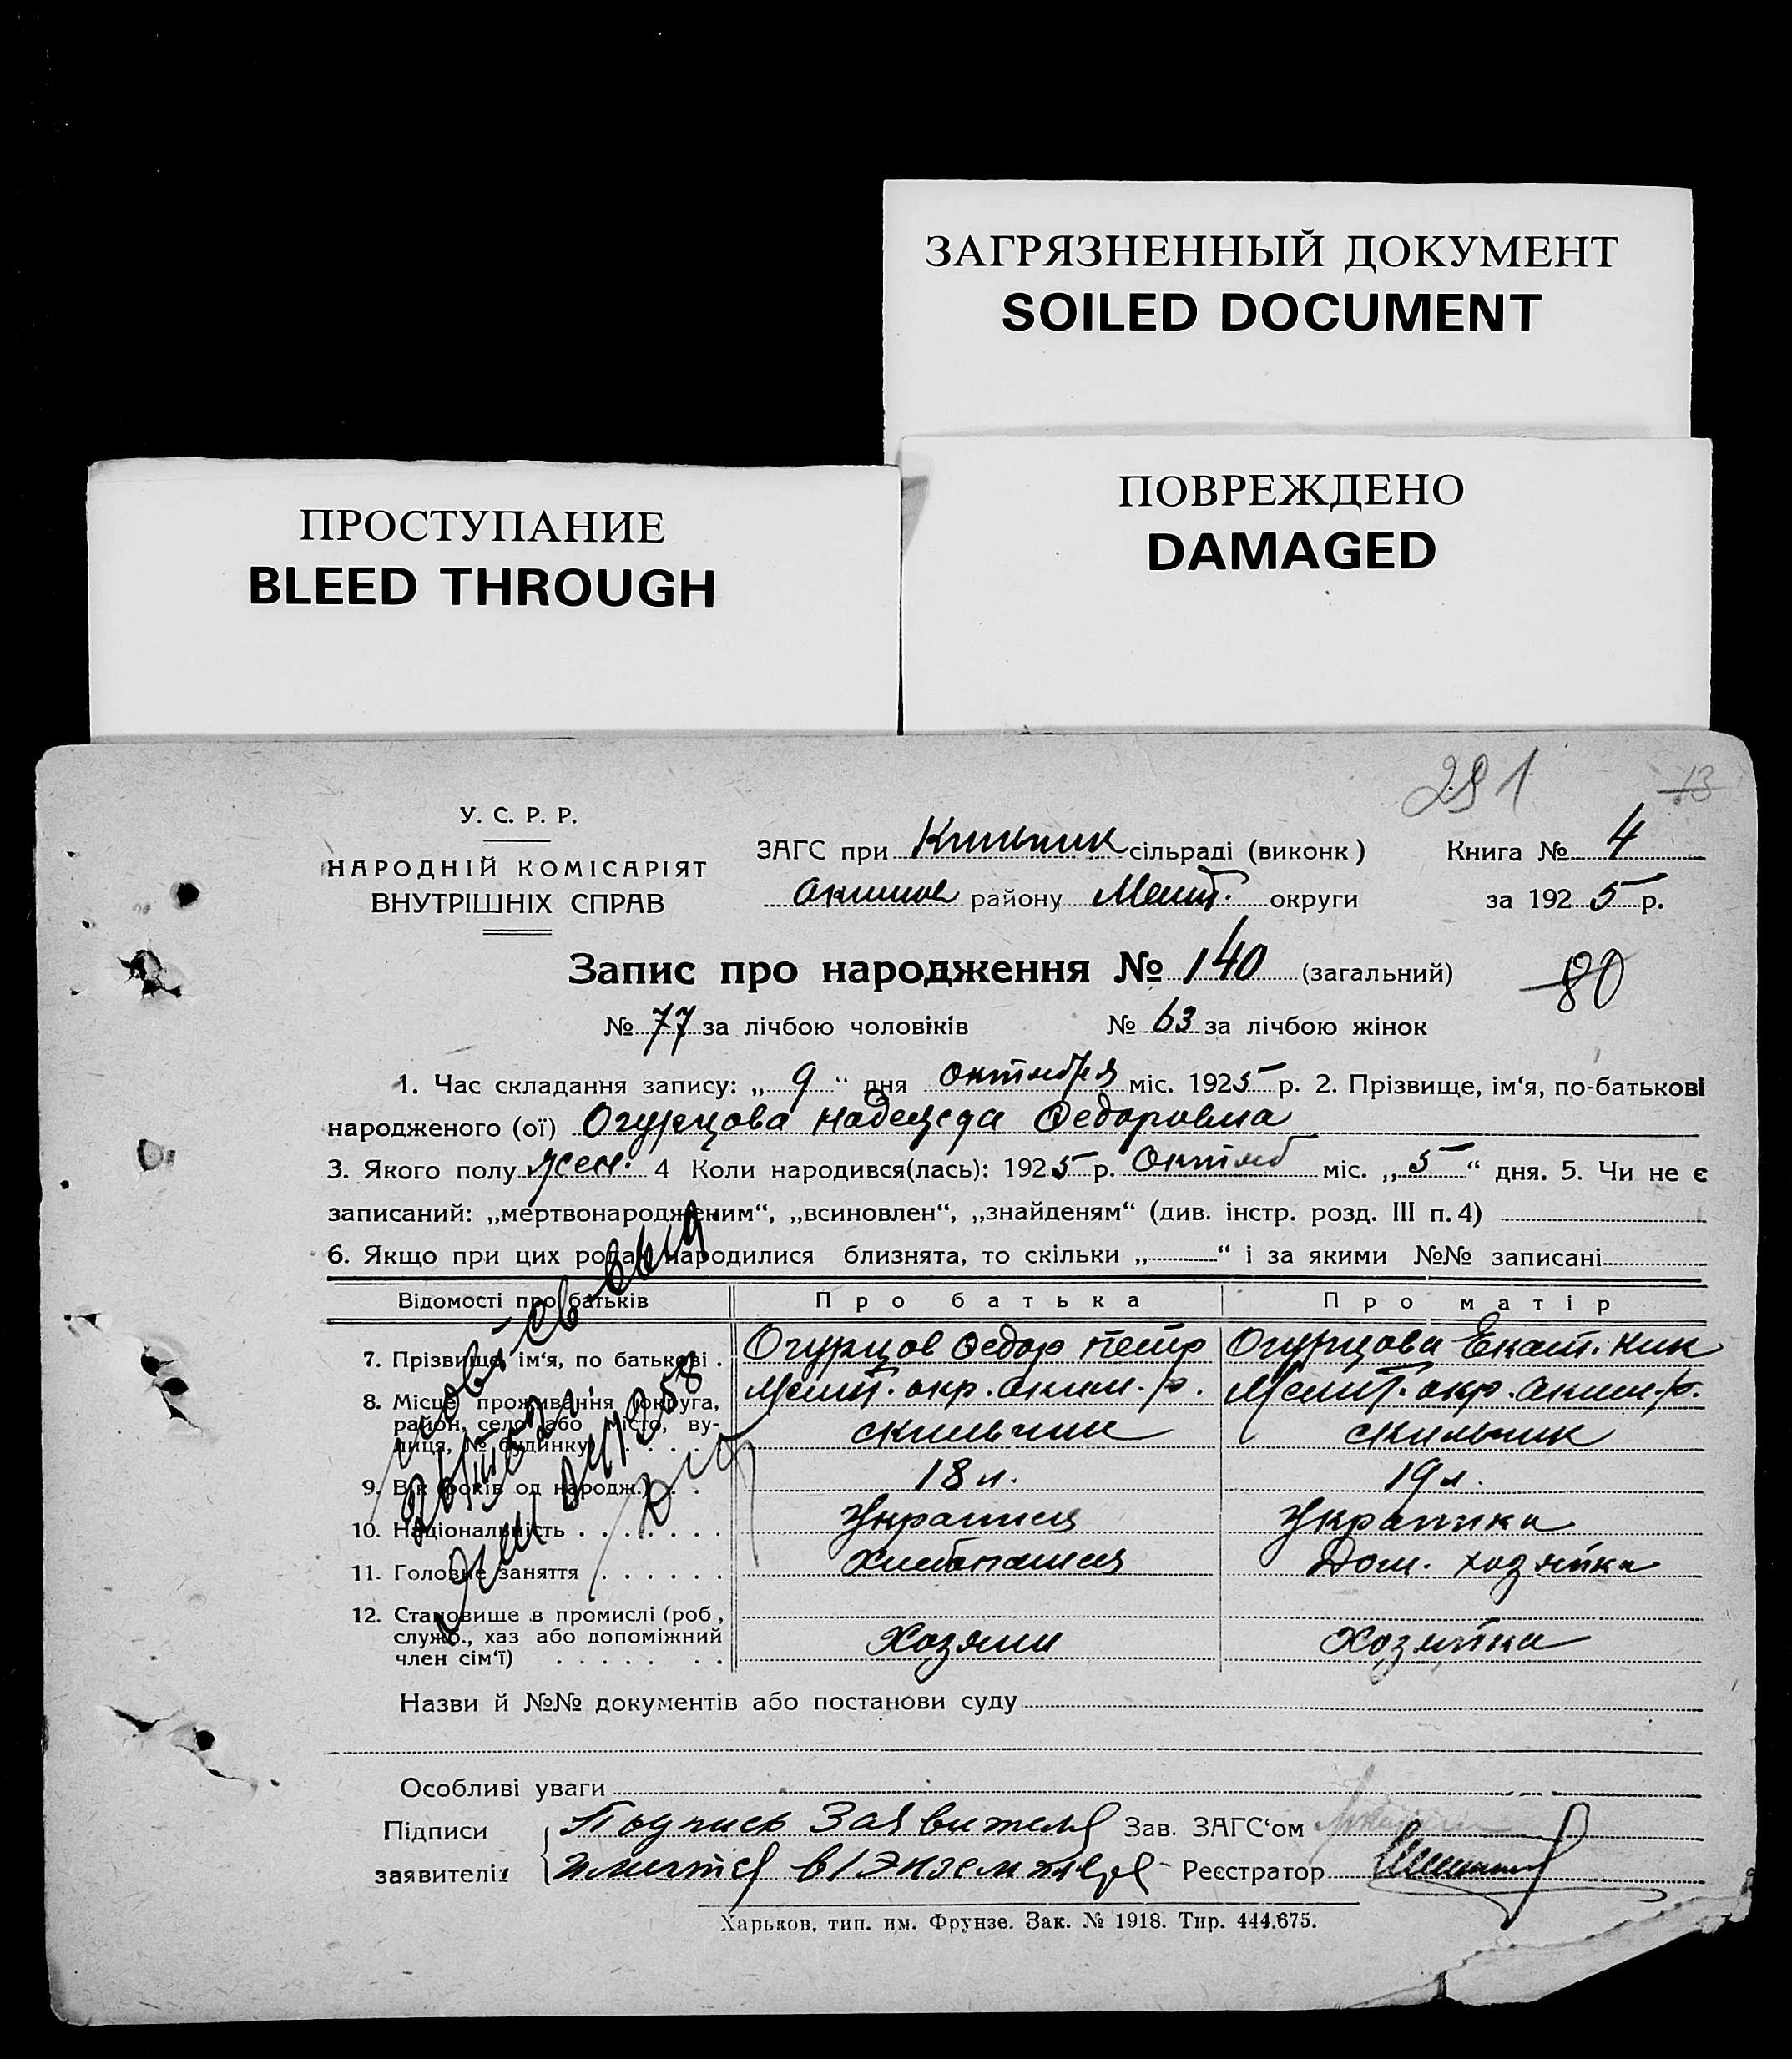 ЗАГРЯЗНЕННЫЙ ДОКУМЕНТ
SOILED DOCUMENT
ПРОСТУПАНИЕ
BLEED THROUGH
ПОВРЕЖДЕНО
DAMAGED
291 13
У. С. Р. Р.
НАРОДНІЙ КОМІСАРІЯТ
ВНУТРІШНІХ СПРАВ
ЗАГС при сільраді (виконк) Книга № 4
Акимов району Мелит. округи за 1925 р.
Запис про народження № 140 (загальний) 80
№ 77 за лічбою чоловіків № 63 за лічбою жінок
1. Час складання запису: „ 9 “ дня октября міс. 1925 р. 2. Прізвище, ім‘я, по-батькові
народженого (ої) Огурцова Надежда Федоровна
3. Якого полу жен. 4 Коли народився(лась): 1925 р. Октяб міс. „ 5 “ дня. 5. Чи не є
записаний: „мертвонародженим“, „всиновлен“, „знайденям“ (див. інстр. розд. III п. 4)
6. Якщо при цих родах народилися близнята, то скільки „ “ і за якими №№ записані
Відомості про батьків Про батька Про матір
7. Прізвище, ім‘я, по батькові . Огурцов Федор Петр Огурцова Екат. Ник
8. Місце проживання (округа, район, село або місто, вулиця, № будинку Мелит. окр. Аким. р. Мелит. окр. Аким. р.
9. Вік (років од народж.) . . . 18 л. 19 л.
10. Національність . . . . . . . Украинец Украинка
11. Головне заняття . . . . . . Хлебопашец Дом. хозяйка
12. Становище в промислі (роб., служб., хаз або допоміжний член сім‘ї) . . . . . . . Хозяин Хозяйка
Назви й №№ документів або постанови суду
Особливі уваги
Підписи Подпись Заявителя Зав. ЗАГС‘ом
заявителів имется в 1 Экземпляре Реєстратор
Харьков, тип. им. Фрунзе. Зак. № 1918. Тир. 444.675.